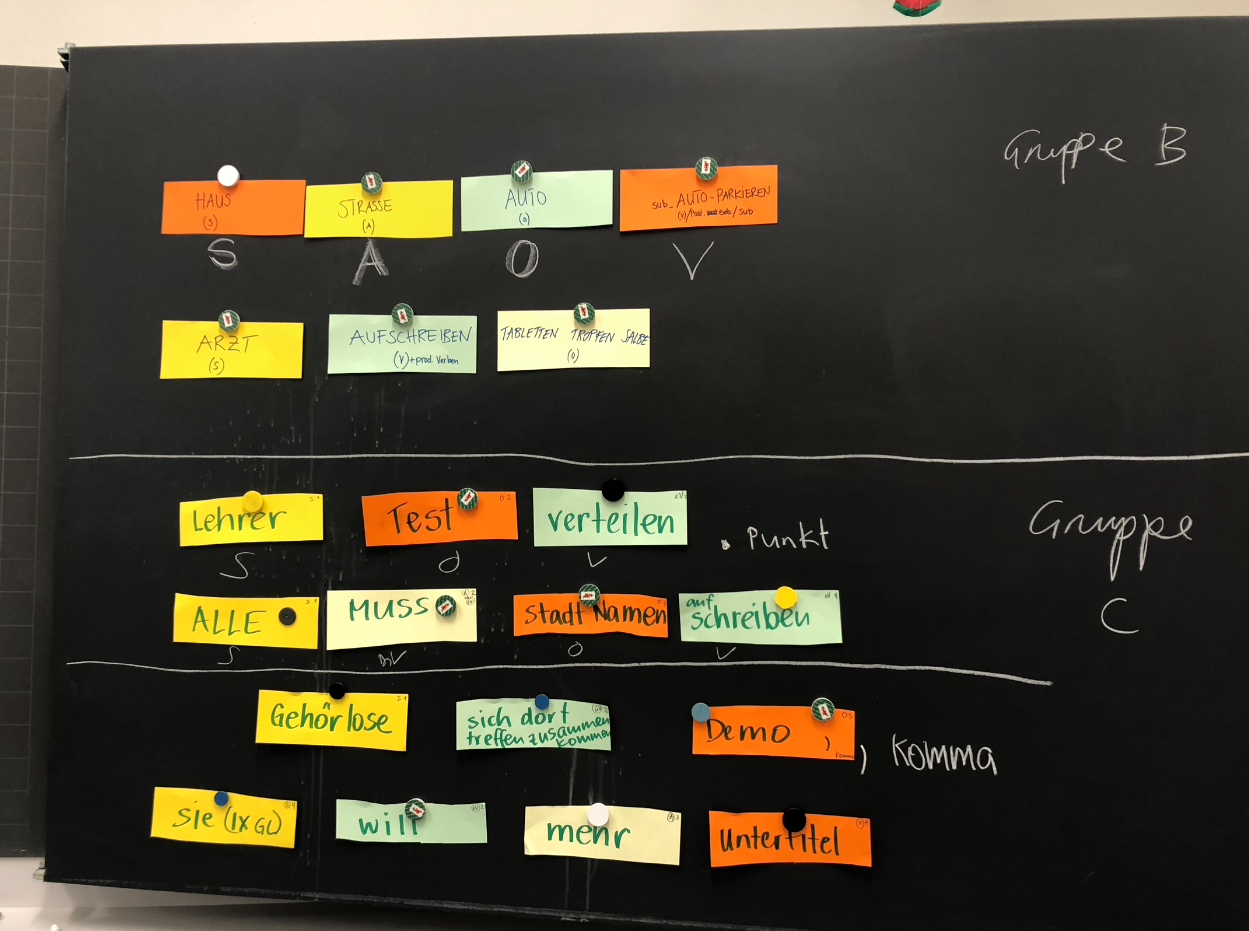 Gruppe B
HAUS STRASSE AUTO sub_AUTO-PARKIEREN
(S) (A) (O) (V)/Prod. / sub
S A O V
ARZT AUFSCHREIBEN TABLETTEN TROPFEN SALBE
(S) (V)+prod. Verben (O)
Gruppe
C
Lehrer Test verteilen . Punkt
S O V
ALLE MUSS Stadt Namen auf
schreiben
S V O V
Gehörlose sich dort Demo , , Komma
treffen zusammen
kommen
sie (IX GL) will mehr Untertitel